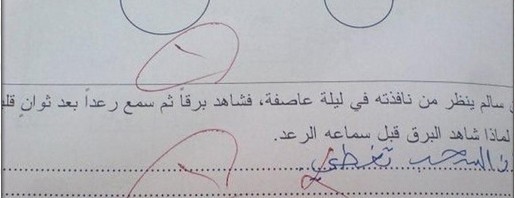 سالم ينظر من نافذته في ليلة عاصفة، فشاهد برقاً ثم سمع رعداً بعد ثوانٍ
لماذا شاهد البرق قبل سماعه الرعد.
السحب تغطي